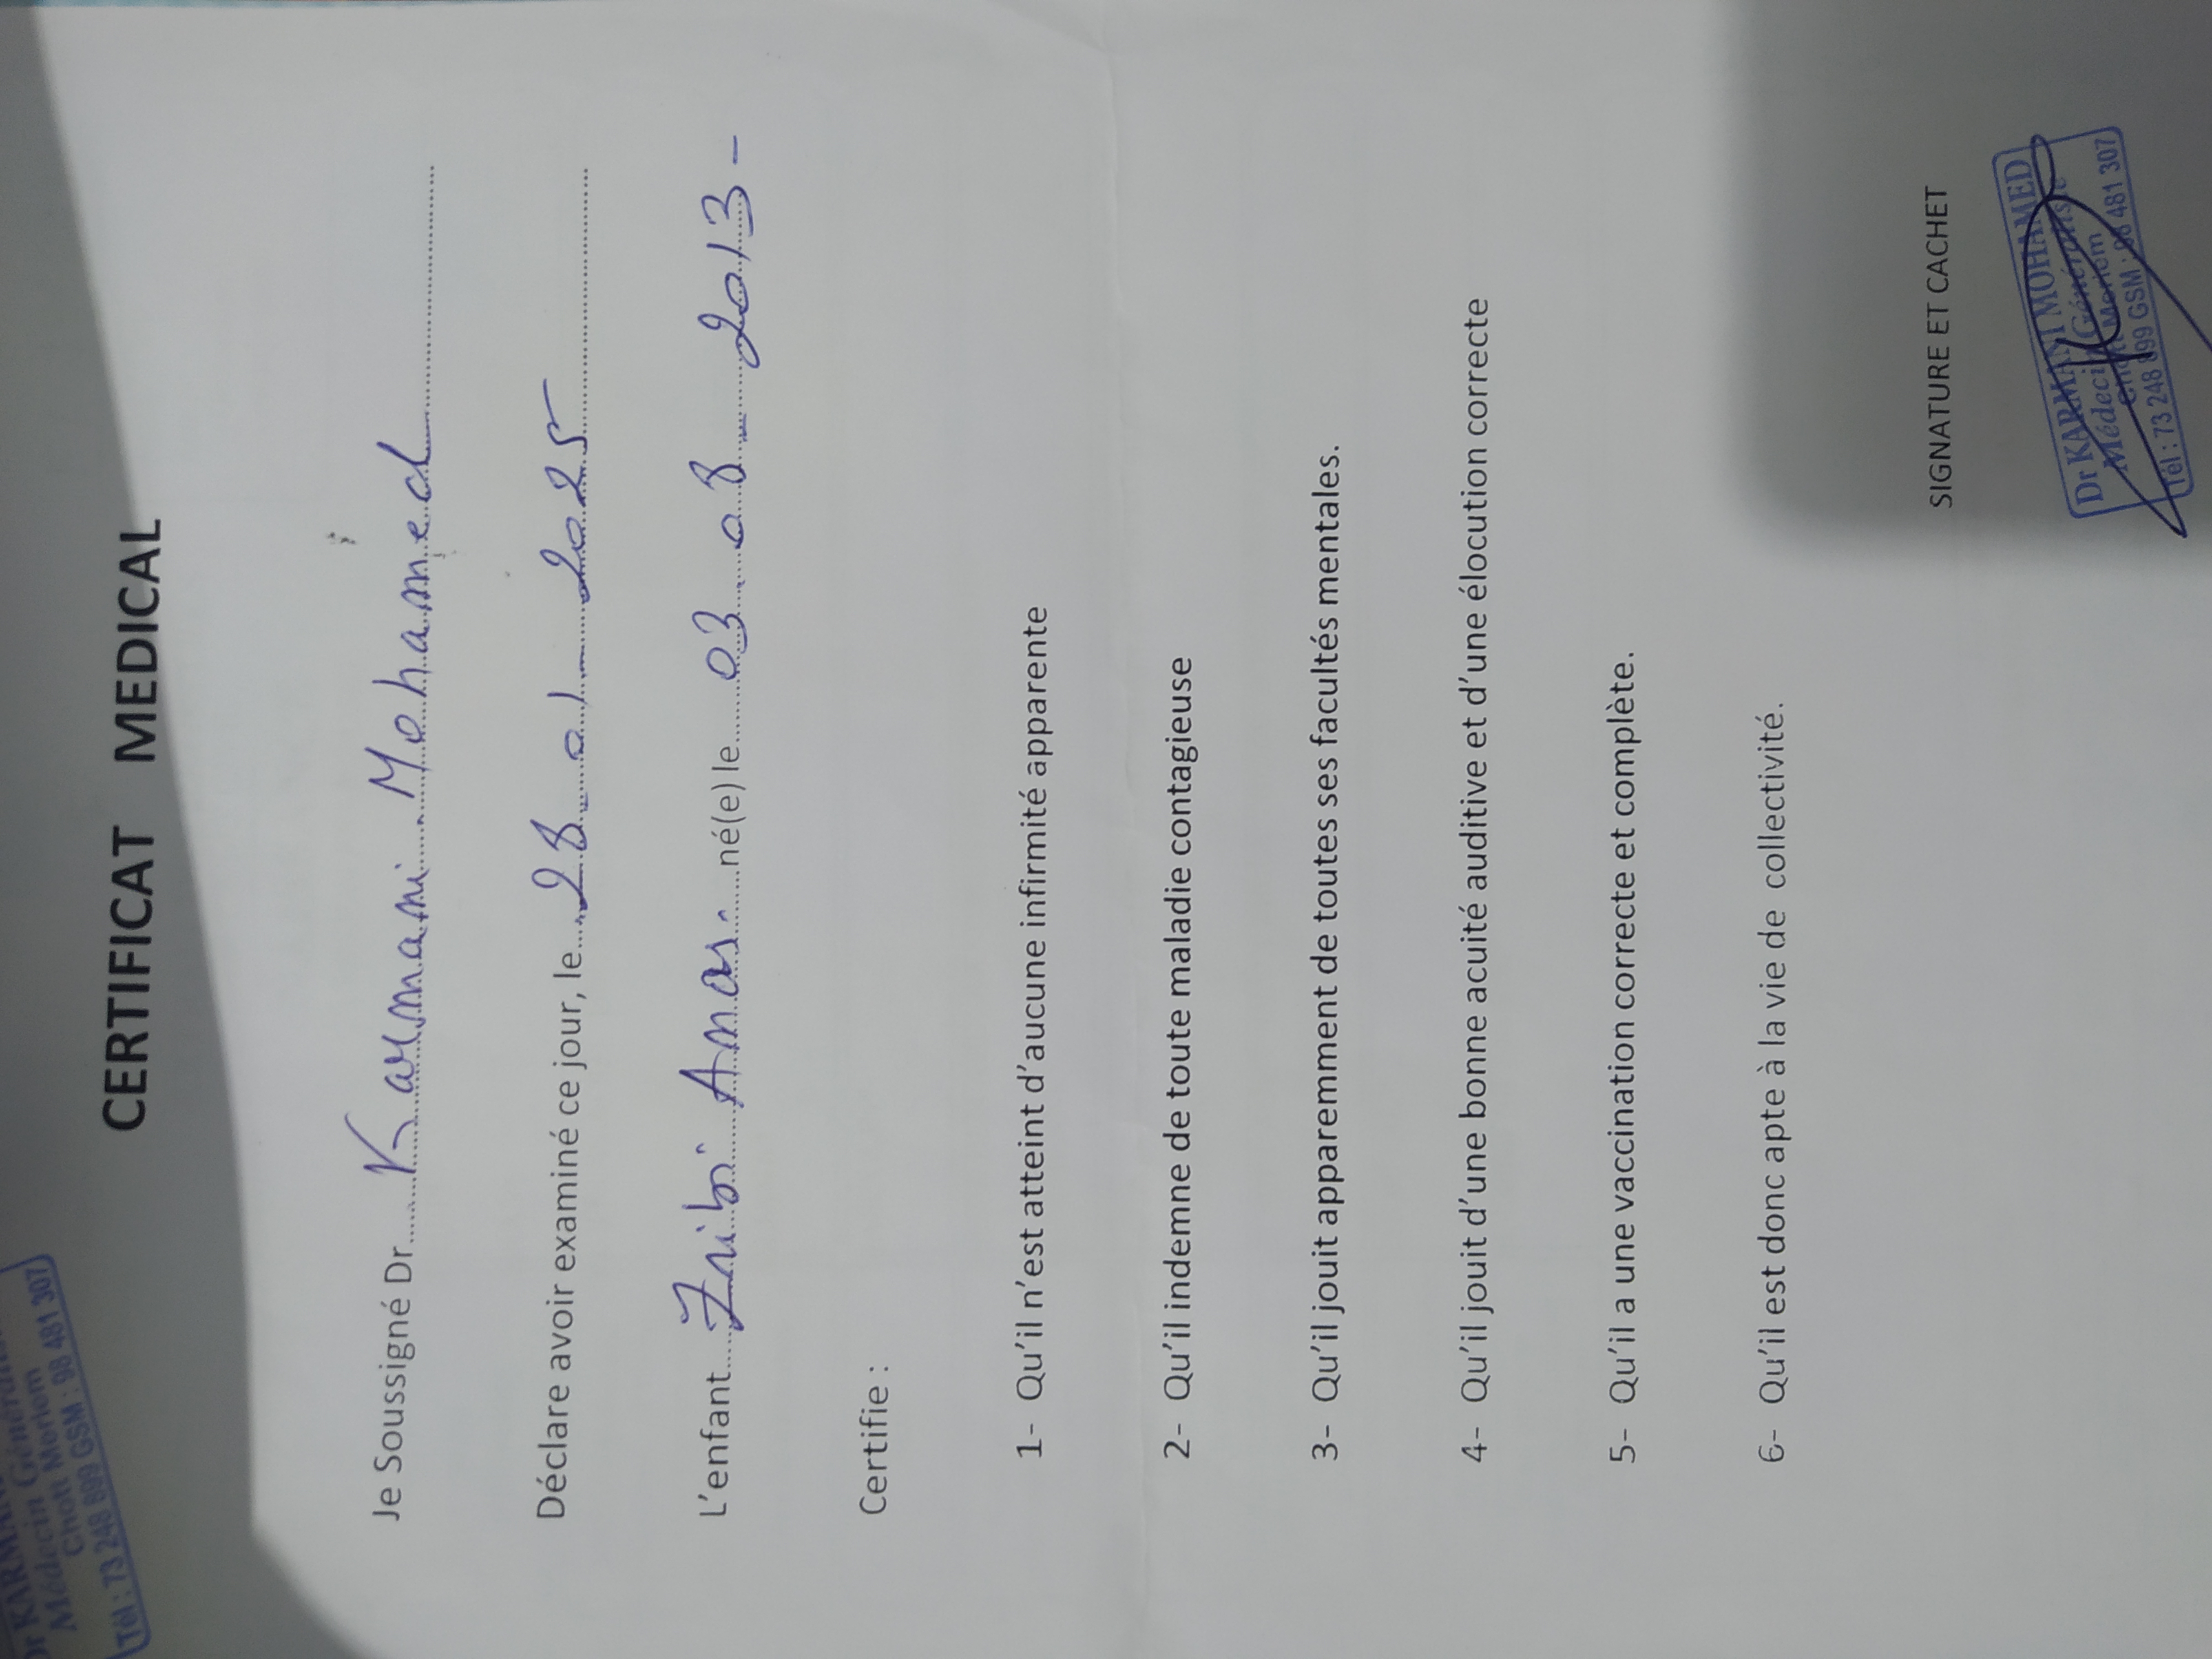 Dr KARMANI
Médecin Général
Chott Meriem
Tél : 73 248 899 GSM : 98 481 307
CERTIFICAT MEDICAL
Je Soussigné Dr......Karmani Mohamed......
Déclare avoir examiné ce jour, le......28 01 2025......
L'enfant......Zribi Anas......né(e) le......03 08 2013-
Certifie :
1- Qu'il n'est atteint d'aucune infirmité apparente
2- Qu'il indemne de toute maladie contagieuse
3- Qu'il jouit apparemment de toutes ses facultés mentales.
4- Qu'il jouit d'une bonne acuité auditive et d'une élocution correcte
5- Qu'il a une vaccination correcte et complète.
6- Qu'il est donc apte à la vie de collectivité.
SIGNATURE ET CACHET
Dr KARMANI MOHAMED
Médecin Généraliste
Chott Meriem
Tél : 73 248 899 GSM : 98 481 307